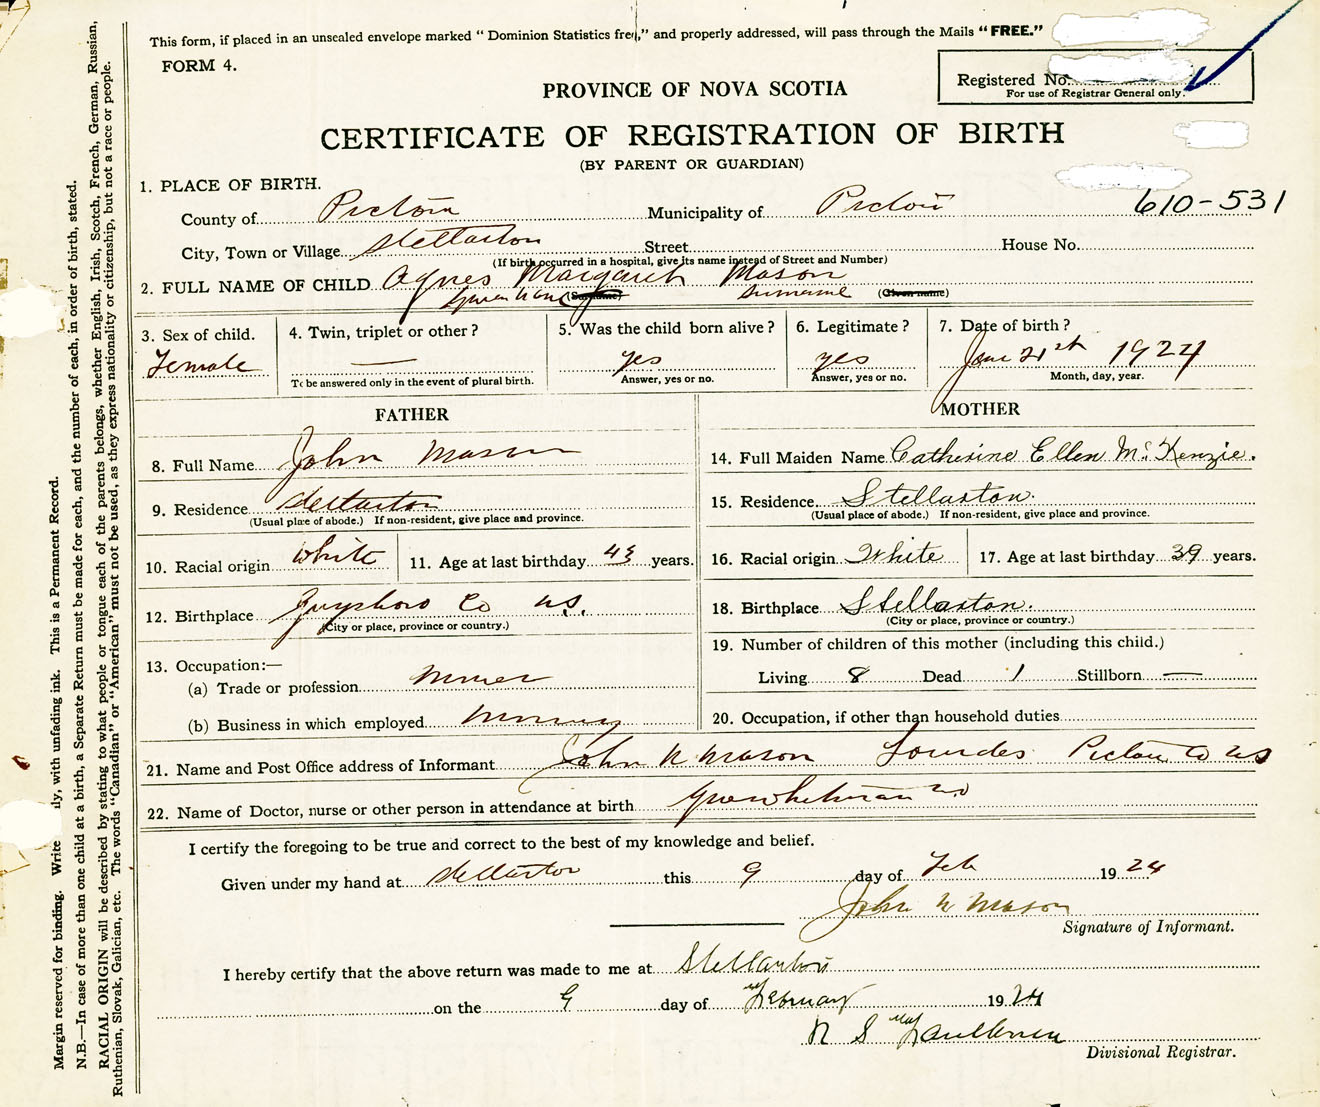 This form, if placed in an unsealed envelope marked " Dominion Statistics free," and properly addressed, will pass through the Mails "FREE."
FORM 4.
Registered No.
For use of Registrar General only.
PROVINCE OF NOVA SCOTIA
CERTIFICATE OF REGISTRATION OF BIRTH
(BY PARENT OR GUARDIAN)
610-531
1. PLACE OF BIRTH.
County of Pictou Municipality of Pictou
City, Town or Village Stellarton Street House No.
(If birth occurred in a hospital, give its name instead of Street and Number)
2. FULL NAME OF CHILD Agnes Margaret Mason
Given name (Surname) Surname (Given name)
3. Sex of child. Female
4. Twin, triplet or other? —
To be answered only in the event of plural birth.
5. Was the child born alive? yes
Answer, yes or no.
6. Legitimate? yes
Answer, yes or no.
7. Date of birth? 21st 1924
Month, day, year.
FATHER
8. Full Name John Mason
9. Residence Stellarton
(Usual place of abode.) If non-resident, give place and province.
10. Racial origin white
11. Age at last birthday 43 years.
12. Birthplace Guysboro Co NS.
(City or place, province or country.)
13. Occupation:—
(a) Trade or profession Miner
(b) Business in which employed Mining
MOTHER
14. Full Maiden Name Catherine Ellen McKenzie.
15. Residence Stellarton.
(Usual place of abode.) If non-resident, give place and province.
16. Racial origin White
17. Age at last birthday 39 years.
18. Birthplace Stellarton.
(City or place, province or country.)
19. Number of children of this mother (including this child.)
Living 8 Dead 1 Stillborn —
20. Occupation, if other than household duties
21. Name and Post Office address of Informant John N Mason Lourdes Pictou Co NS
22. Name of Doctor, nurse or other person in attendance at birth
I certify the foregoing to be true and correct to the best of my knowledge and belief.
Given under my hand at Stellarton this 9 day of Feb 1924
John N Mason
Signature of Informant.
I hereby certify that the above return was made to me at Stellarton
on the 9 day of February 1924
Divisional Registrar.
Margin reserved for binding. Write ly, with unfading ink. This is a Permanent Record.
N.B.—In case of more than one child at a birth, a Separate Return must be made for each, and the number of each, in order of birth, stated.
RACIAL ORIGIN will be described by stating to what people or tongue each of the parents belongs, whether English, Irish, Scotch, French, German, Russian,
Ruthenian, Slovak, Galician, etc. The words "Canadian" or "American" must not be used, as they express nationality or citizenship, but not a race or people.